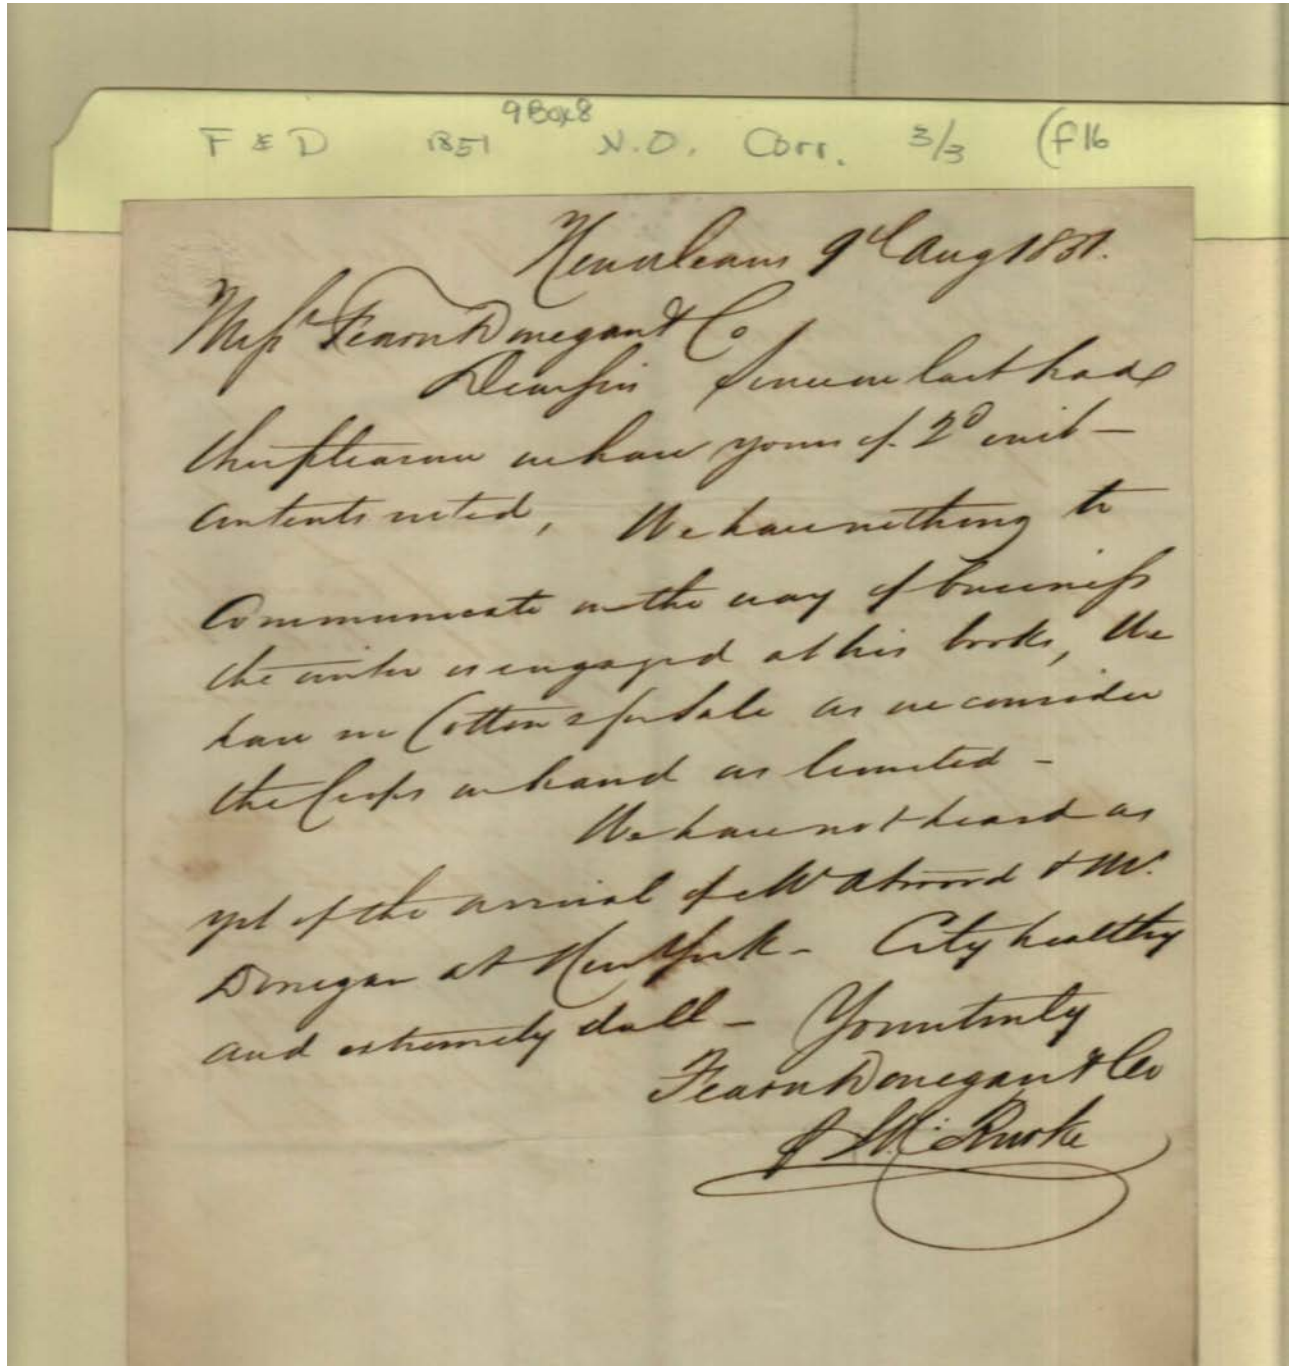 9 Box 8
F & D 1851 N.O. Corr. 3/3 (F16
New Orleans 9th Aug 1851.
Messrs Fearn Donegan & Co
Dear Sirs Since we last had
the pleasure we have yours of 2d inst —
contents noted, We have nothing to
Communicate in the way of business
the writer is engaged at his books, We
have no Cottons for Sale as we consider
the on hand as limited —
We have not heard as
yet of the arrival of Mr Atwood & Mr.
Donegan at New York — City healthy
and extremely dull — Yours truly
Fearn Donegan & Co